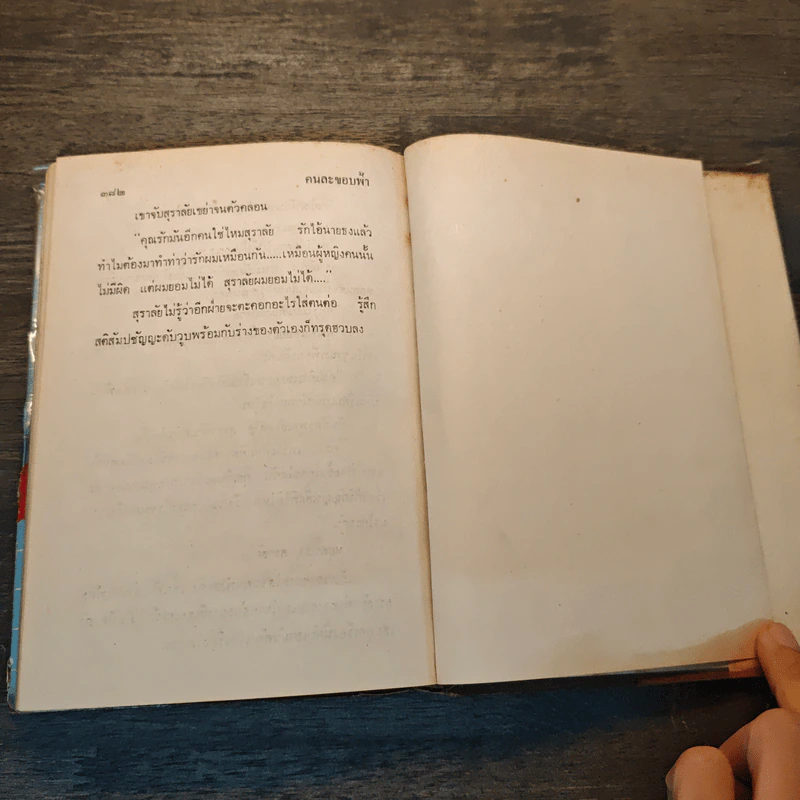 ๓๘๒
คนละขอบฟ้า
เขาจับสุราลัยเขย่าจนตัวคลอน
"คุณรักมันอีกคนใช่ไหมสุราลัย รักไอ้นายธงแล้ว
ทำไมต้องมาทำท่าว่ารักผมเหมือนกัน.....เหมือนผู้หญิงคนนั้น
ไม่มีผิด แต่ผมยอมไม่ได้ สุราลัยผมยอมไม่ได้...."
สุราลัยไม่รู้ว่าอีกฝ่ายจะตะคอกอะไรใส่ตนต่อ รู้สึก
สติสัมปชัญญะดับวูบพร้อมกับร่างของตัวเองก็ทรุดฮวบลง